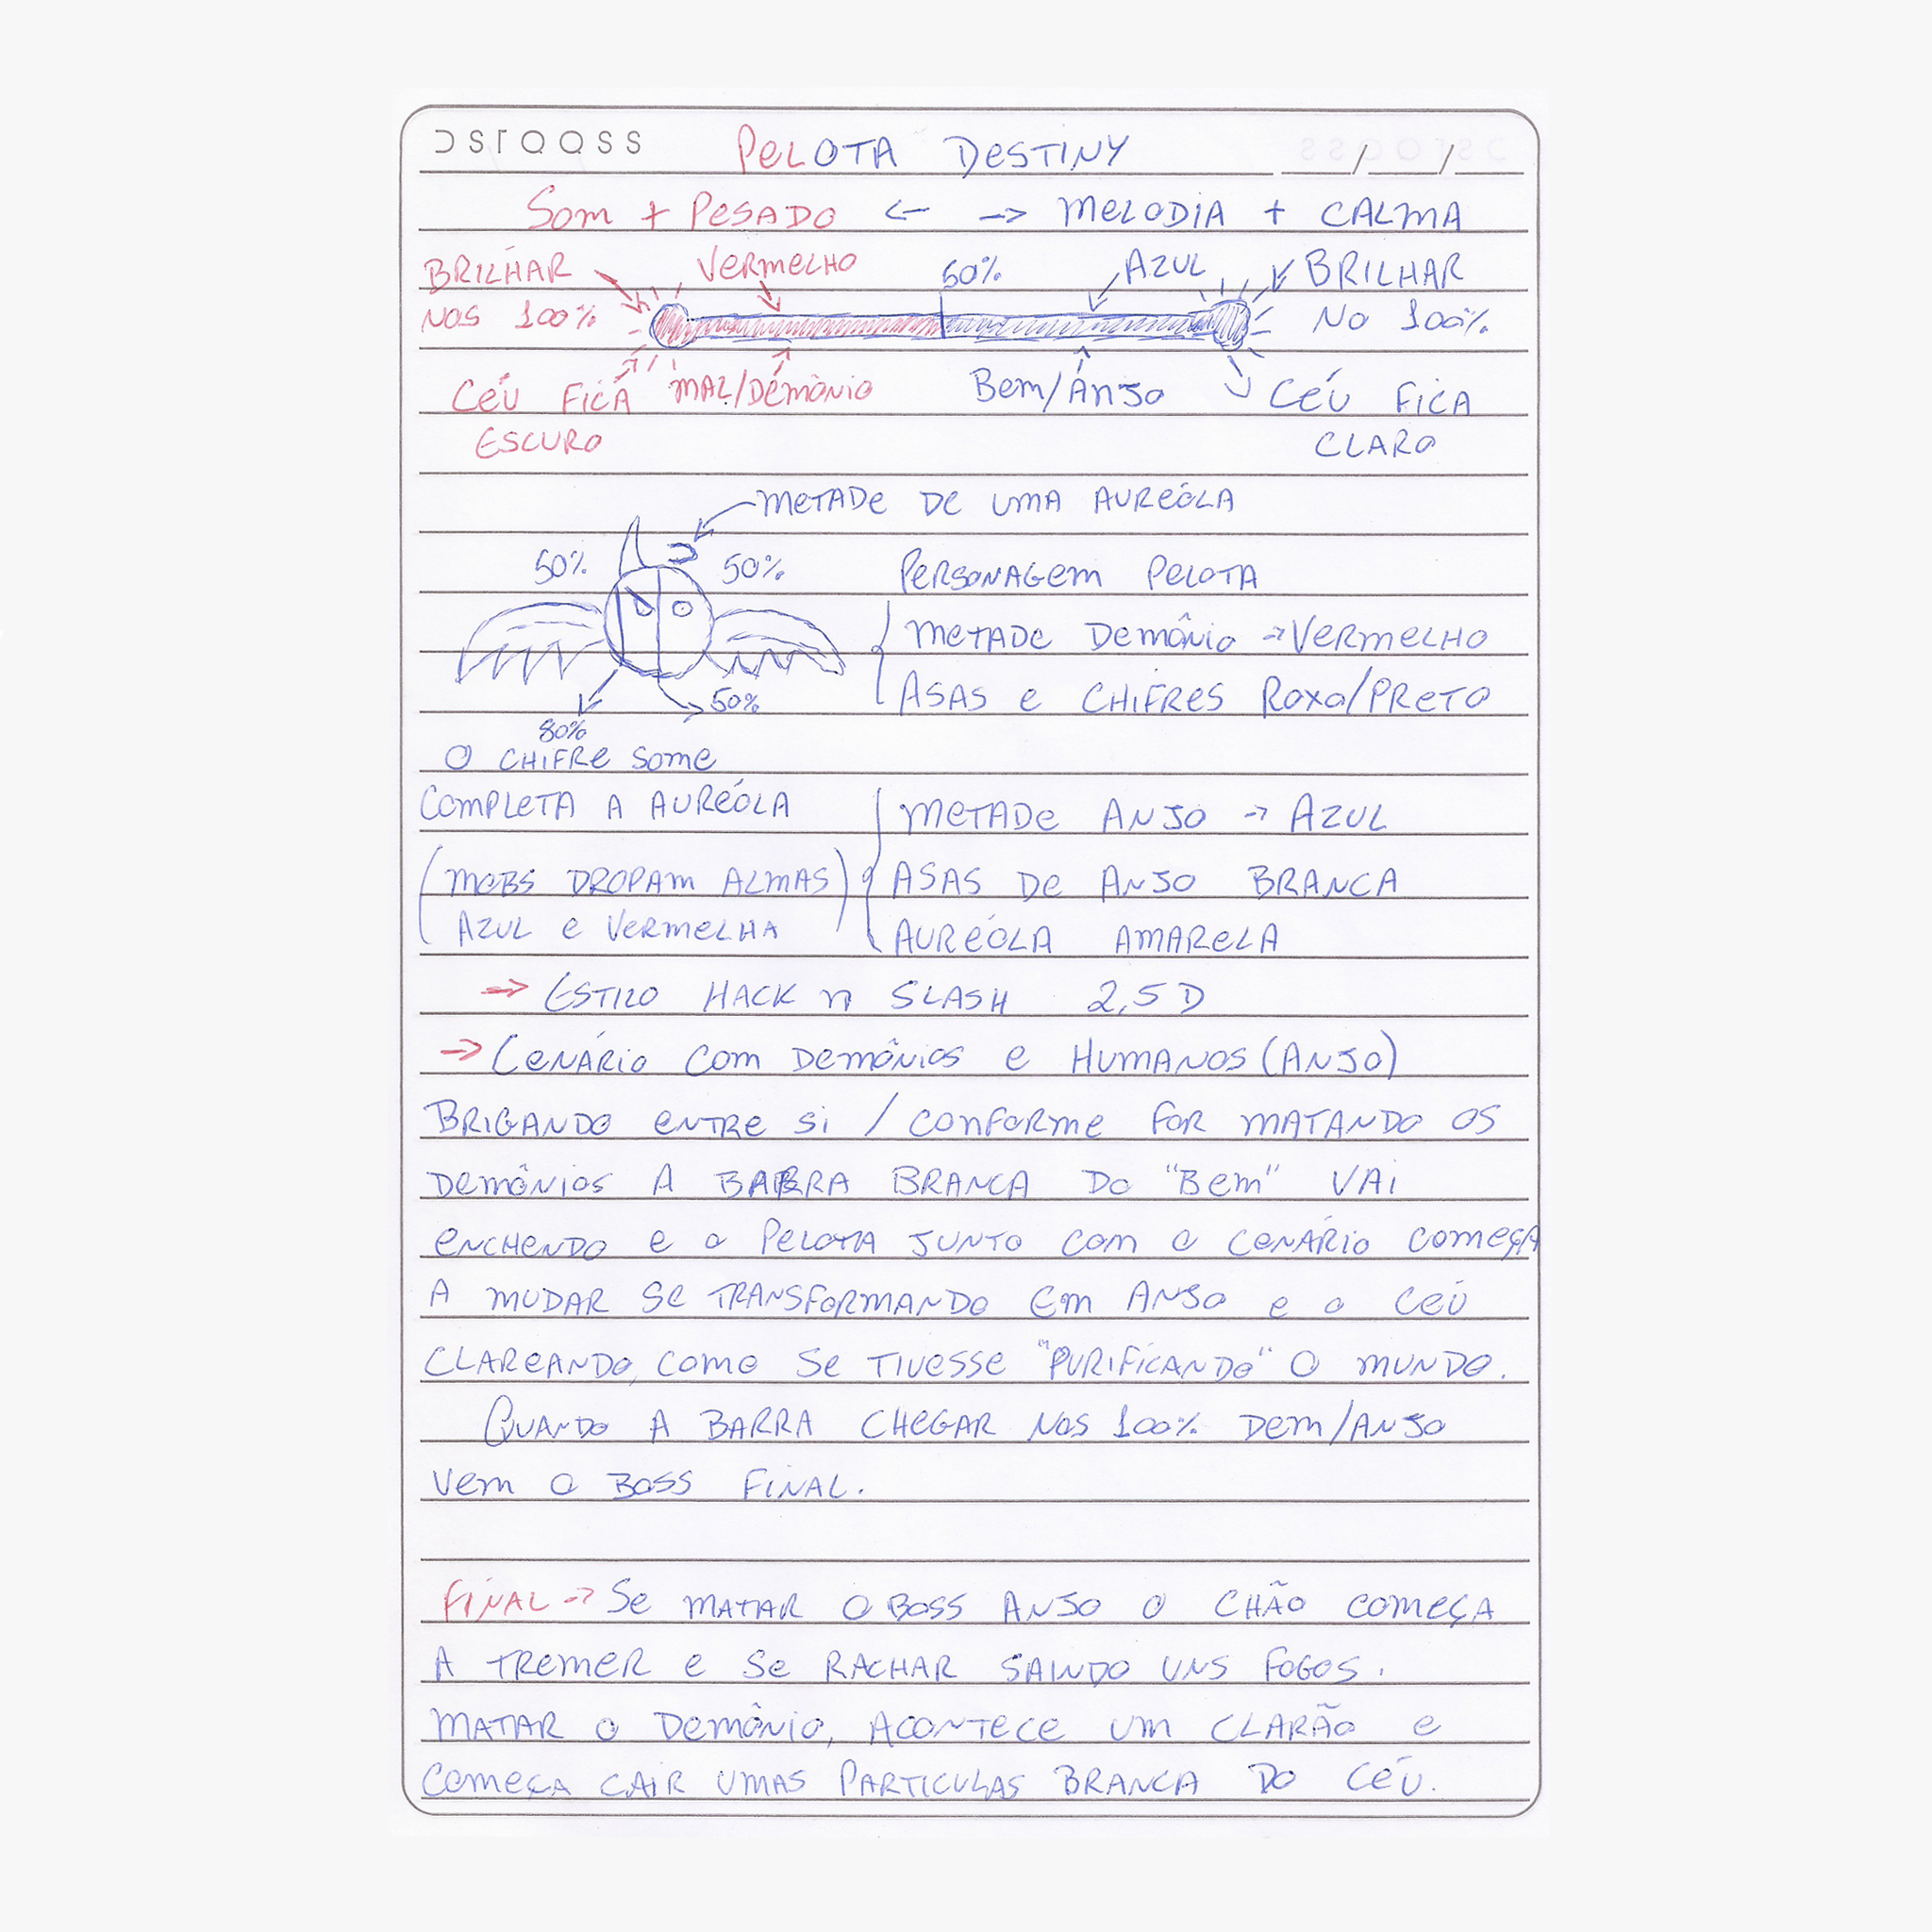 DSTQQSS PELOTA DESTINY __/__/__
SOM + PESADO <- -> MELODIA + CALMA
BRILHAR VERMELHO 50% AZUL BRILHAR
NOS 100% NO 100%
CÉU FICA MAL/DEMÔNIO BEM/ANJO CÉU FICA
ESCURO CLARO
METADE DE UMA AUREÓLA
50% 50% PERSONAGEM PELOTA
METADE DEMÔNIO -> VERMELHO
50% ASAS E CHIFRES ROXO/PRETO
80%
O CHIFRE SOME
COMPLETA A AUREÓLA METADE ANJO -> AZUL
(MOBS DROPAM ALMAS) ASAS DE ANJO BRANCA
AZUL E VERMELHA AUREÓLA AMARELA
-> ESTILO HACK N SLASH 2,5D
-> CENÁRIO COM DEMÔNIOS E HUMANOS (ANJO)
BRIGANDO ENTRE SI / CONFORME FOR MATANDO OS
DEMÔNIOS A BARRA BRANCA DO "BEM" VAI
ENCHENDO E O PELOTA JUNTO COM O CENÁRIO COMEÇA
A MUDAR SE TRANSFORMANDO EM ANJO E O CÉU
CLAREANDO, COMO SE TIVESSE "PURIFICANDO" O MUNDO.
QUANDO A BARRA CHEGAR NOS 100% DEM/ANJO
VEM O BOSS FINAL.
FINAL -> SE MATAR O BOSS ANJO O CHÃO COMEÇA
A TREMER E SE RACHAR SAINDO UNS FOGOS.
MATAR O DEMÔNIO, ACONTECE UM CLARÃO E
COMEÇA CAIR UMAS PARTICULAS BRANCA DO CÉU.